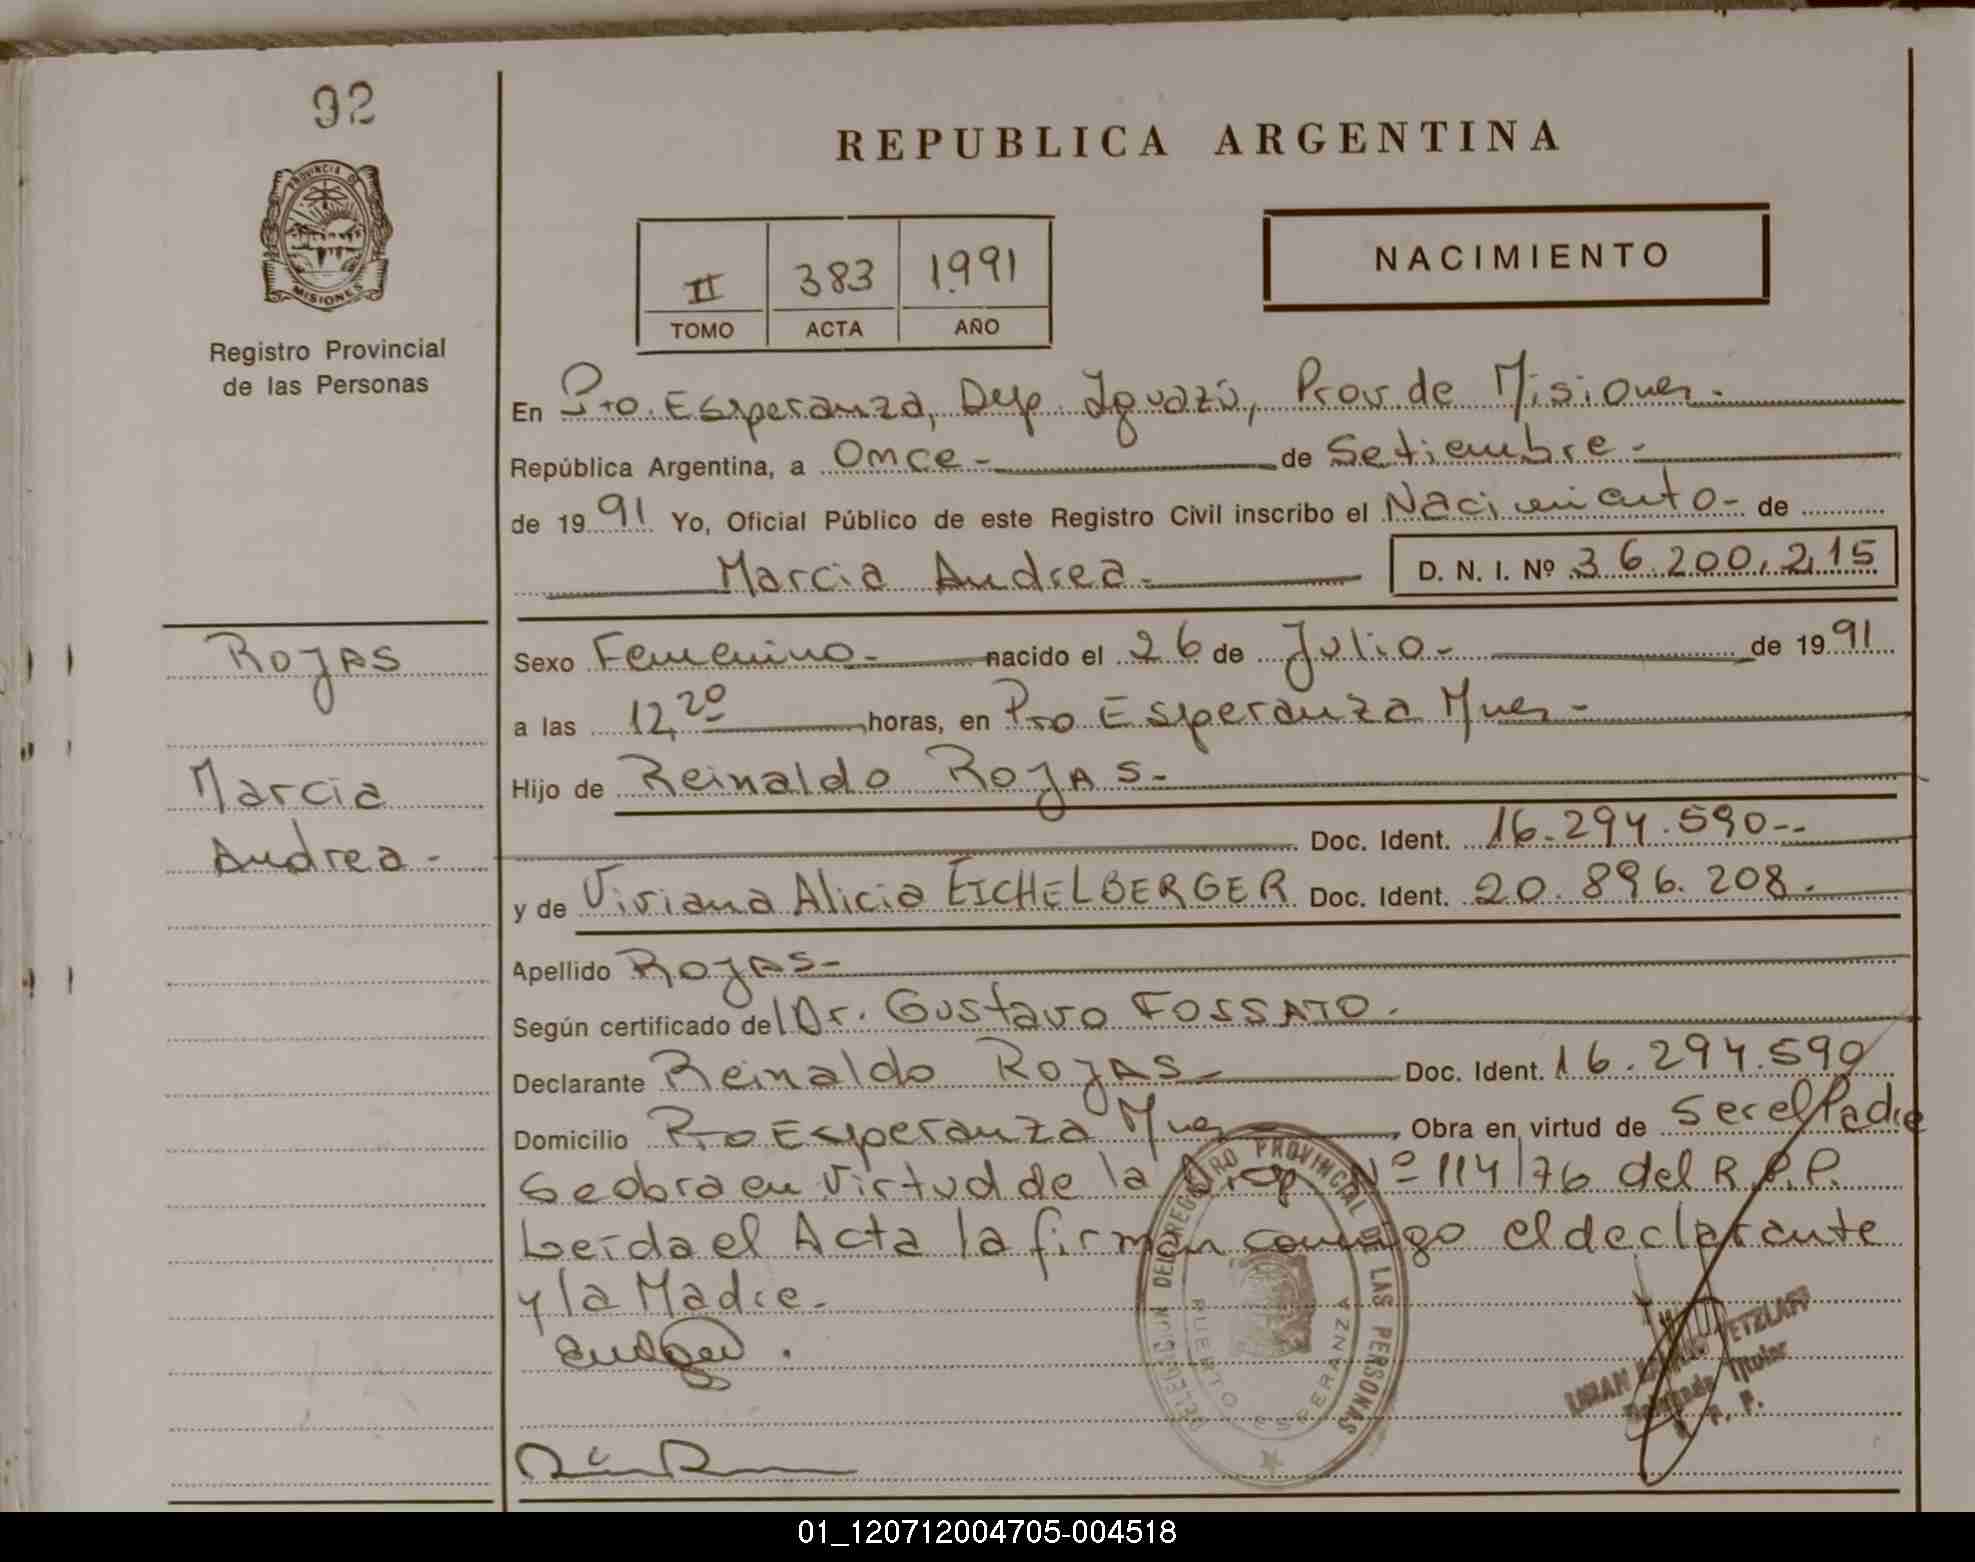 92
PROVINCIA DE
MISIONES
Registro Provincial
de las Personas
REPUBLICA ARGENTINA
II 383 1991
TOMO ACTA AÑO
NACIMIENTO
En Pto. Esperanza, Dep. Iguazú, Prov. de Misiones.-
República Argentina, a Once - de Setiembre -
de 1991 Yo, Oficial Público de este Registro Civil inscribo el Nacimiento - de
Marcia Andrea - D. N. I. Nº 36.200.215
Rojas
Marcia
Andrea -
Sexo Femenino - nacido el 26 de Julio - de 1991
a las 12,20 horas, en Pto Esperanza Mnes -
Hijo de Reinaldo Rojas -
Doc. Ident. 16.294.590--
y de Viviana Alicia EICHELBERGER Doc. Ident. 20.896.208.
Apellido Rojas -
Según certificado del Dr. Gustavo FOSSATO.
Declarante Reinaldo Rojas - Doc. Ident. 16.294.590
Domicilio Pto Esperanza Mnes - Obra en virtud de Ser el Padre
Se obra en virtud de la Disp Nº 114/76 del R.P.P.
Leída el Acta la firman conmigo el declarante
y la Madre.
DELEGACION DEL REGISTRO PROVINCIAL DE LAS PERSONAS
PUERTO ESPERANZA
Titular
01_120712004705-004518